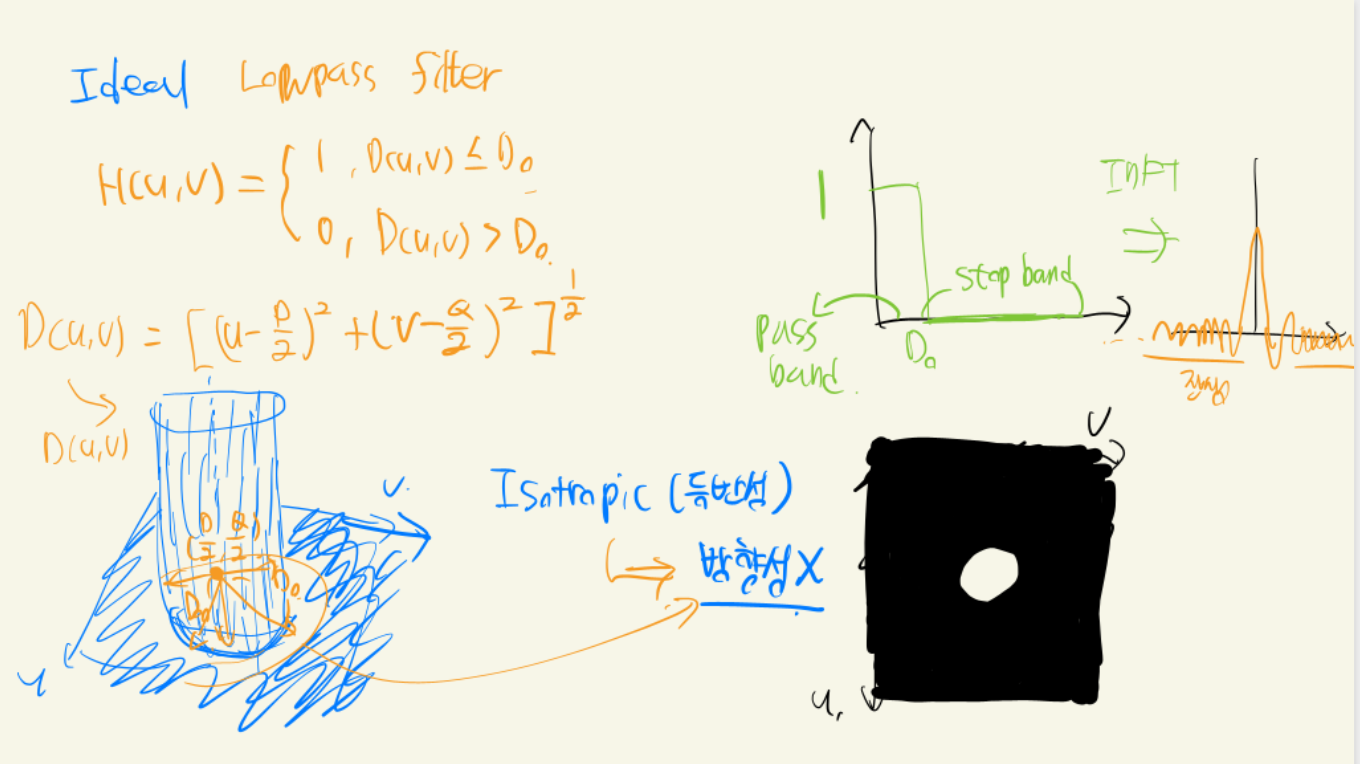 Ideal Lowpass filter
H(u,v) = { 1 , D(u,v) ≤ D₀
0, D(u,v) > D₀.
D(u,v) = [(u-P/2)² + (v-Q/2)²]^1/2
D(u,v)
v.
(P/2, Q/2)
D₀
D₀
u
Isotropic (등방성)
방향성 X
1
stop band
pass
band.
D₀
v
u.